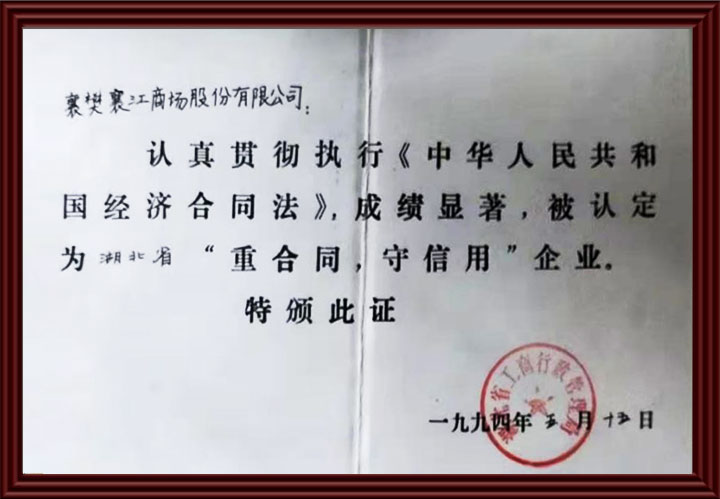 襄樊襄江商场股份有限公司：
认真贯彻执行《中华人民共和
国经济合同法》，成绩显著，被认定
为湖北省“重合同，守信用”企业。
特颁此证
湖北省工商行政管理局
一九九四年五月十五日